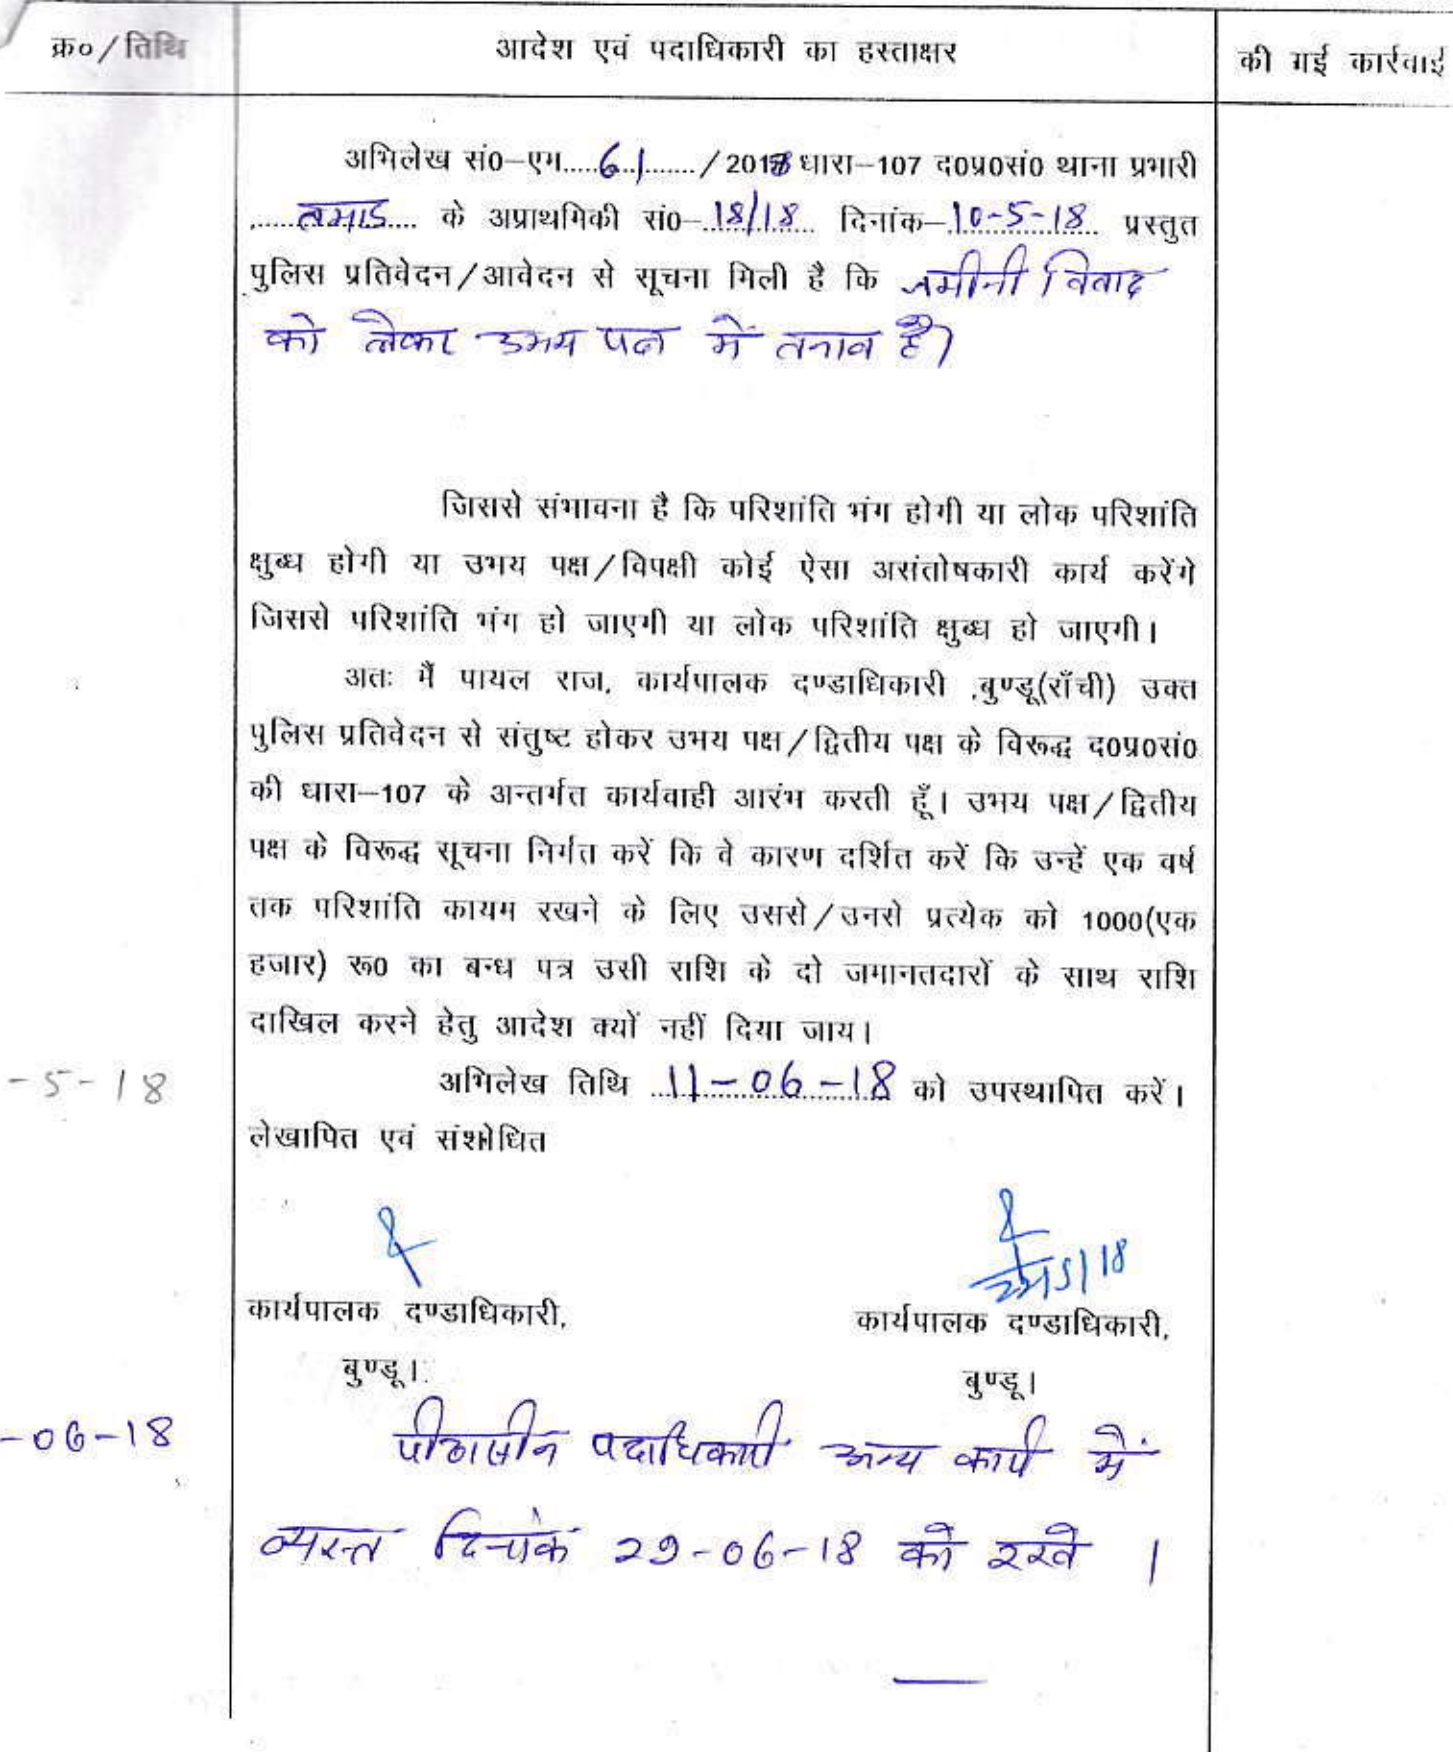 क्र०/तिथि
आदेश एवं पदाधिकारी का हस्ताक्षर
की गई कार्रवाई
अभिलेख सं0–एम.....61......../2018 धारा–107 द0प्र0सं0 थाना प्रभारी
......तमाड़.... के अप्राथमिकी सं0–18/18 दिनांक–10-5-18 प्रस्तुत
पुलिस प्रतिवेदन/आवेदन से सूचना मिली है कि जमीनी विवाद
को लेकर उभय पक्ष में तनाव है।
जिससे संभावना है कि परिशांति भंग होगी या लोक परिशांति
क्षुब्ध होगी या उभय पक्ष/विपक्षी कोई ऐसा असंतोषकारी कार्य करेंगे
जिससे परिशांति भंग हो जाएगी या लोक परिशांति क्षुब्ध हो जाएगी।
अतः मैं पायल राज, कार्यपालक दण्डाधिकारी ,बुण्डू(राँची) उक्त
पुलिस प्रतिवेदन से संतुष्ट होकर उभय पक्ष/द्वितीय पक्ष के विरूद्ध द0प्र0सं0
की धारा–107 के अन्तर्गत कार्यवाही आरंभ करती हूँ। उभय पक्ष/द्वितीय
पक्ष के विरूद्ध सूचना निर्गत करें कि वे कारण दर्शित करें कि उन्हें एक वर्ष
तक परिशांति कायम रखने के लिए उससे/उनसे प्रत्येक को 1000(एक
हजार) रू0 का बन्ध पत्र उसी राशि के दो जमानतदारों के साथ राशि
दाखिल करने हेतु आदेश क्यों नहीं दिया जाय।
-5-18
अभिलेख तिथि 11-06-18 को उपस्थापित करें।
लेखापित एवं संशोधित
कार्यपालक दण्डाधिकारी,
बुण्डू।
5/18
कार्यपालक दण्डाधिकारी,
बुण्डू।
-06-18
पीठासीन पदाधिकारी अन्य कार्य में
व्यस्त दिनांक 29-06-18 को रखें ।